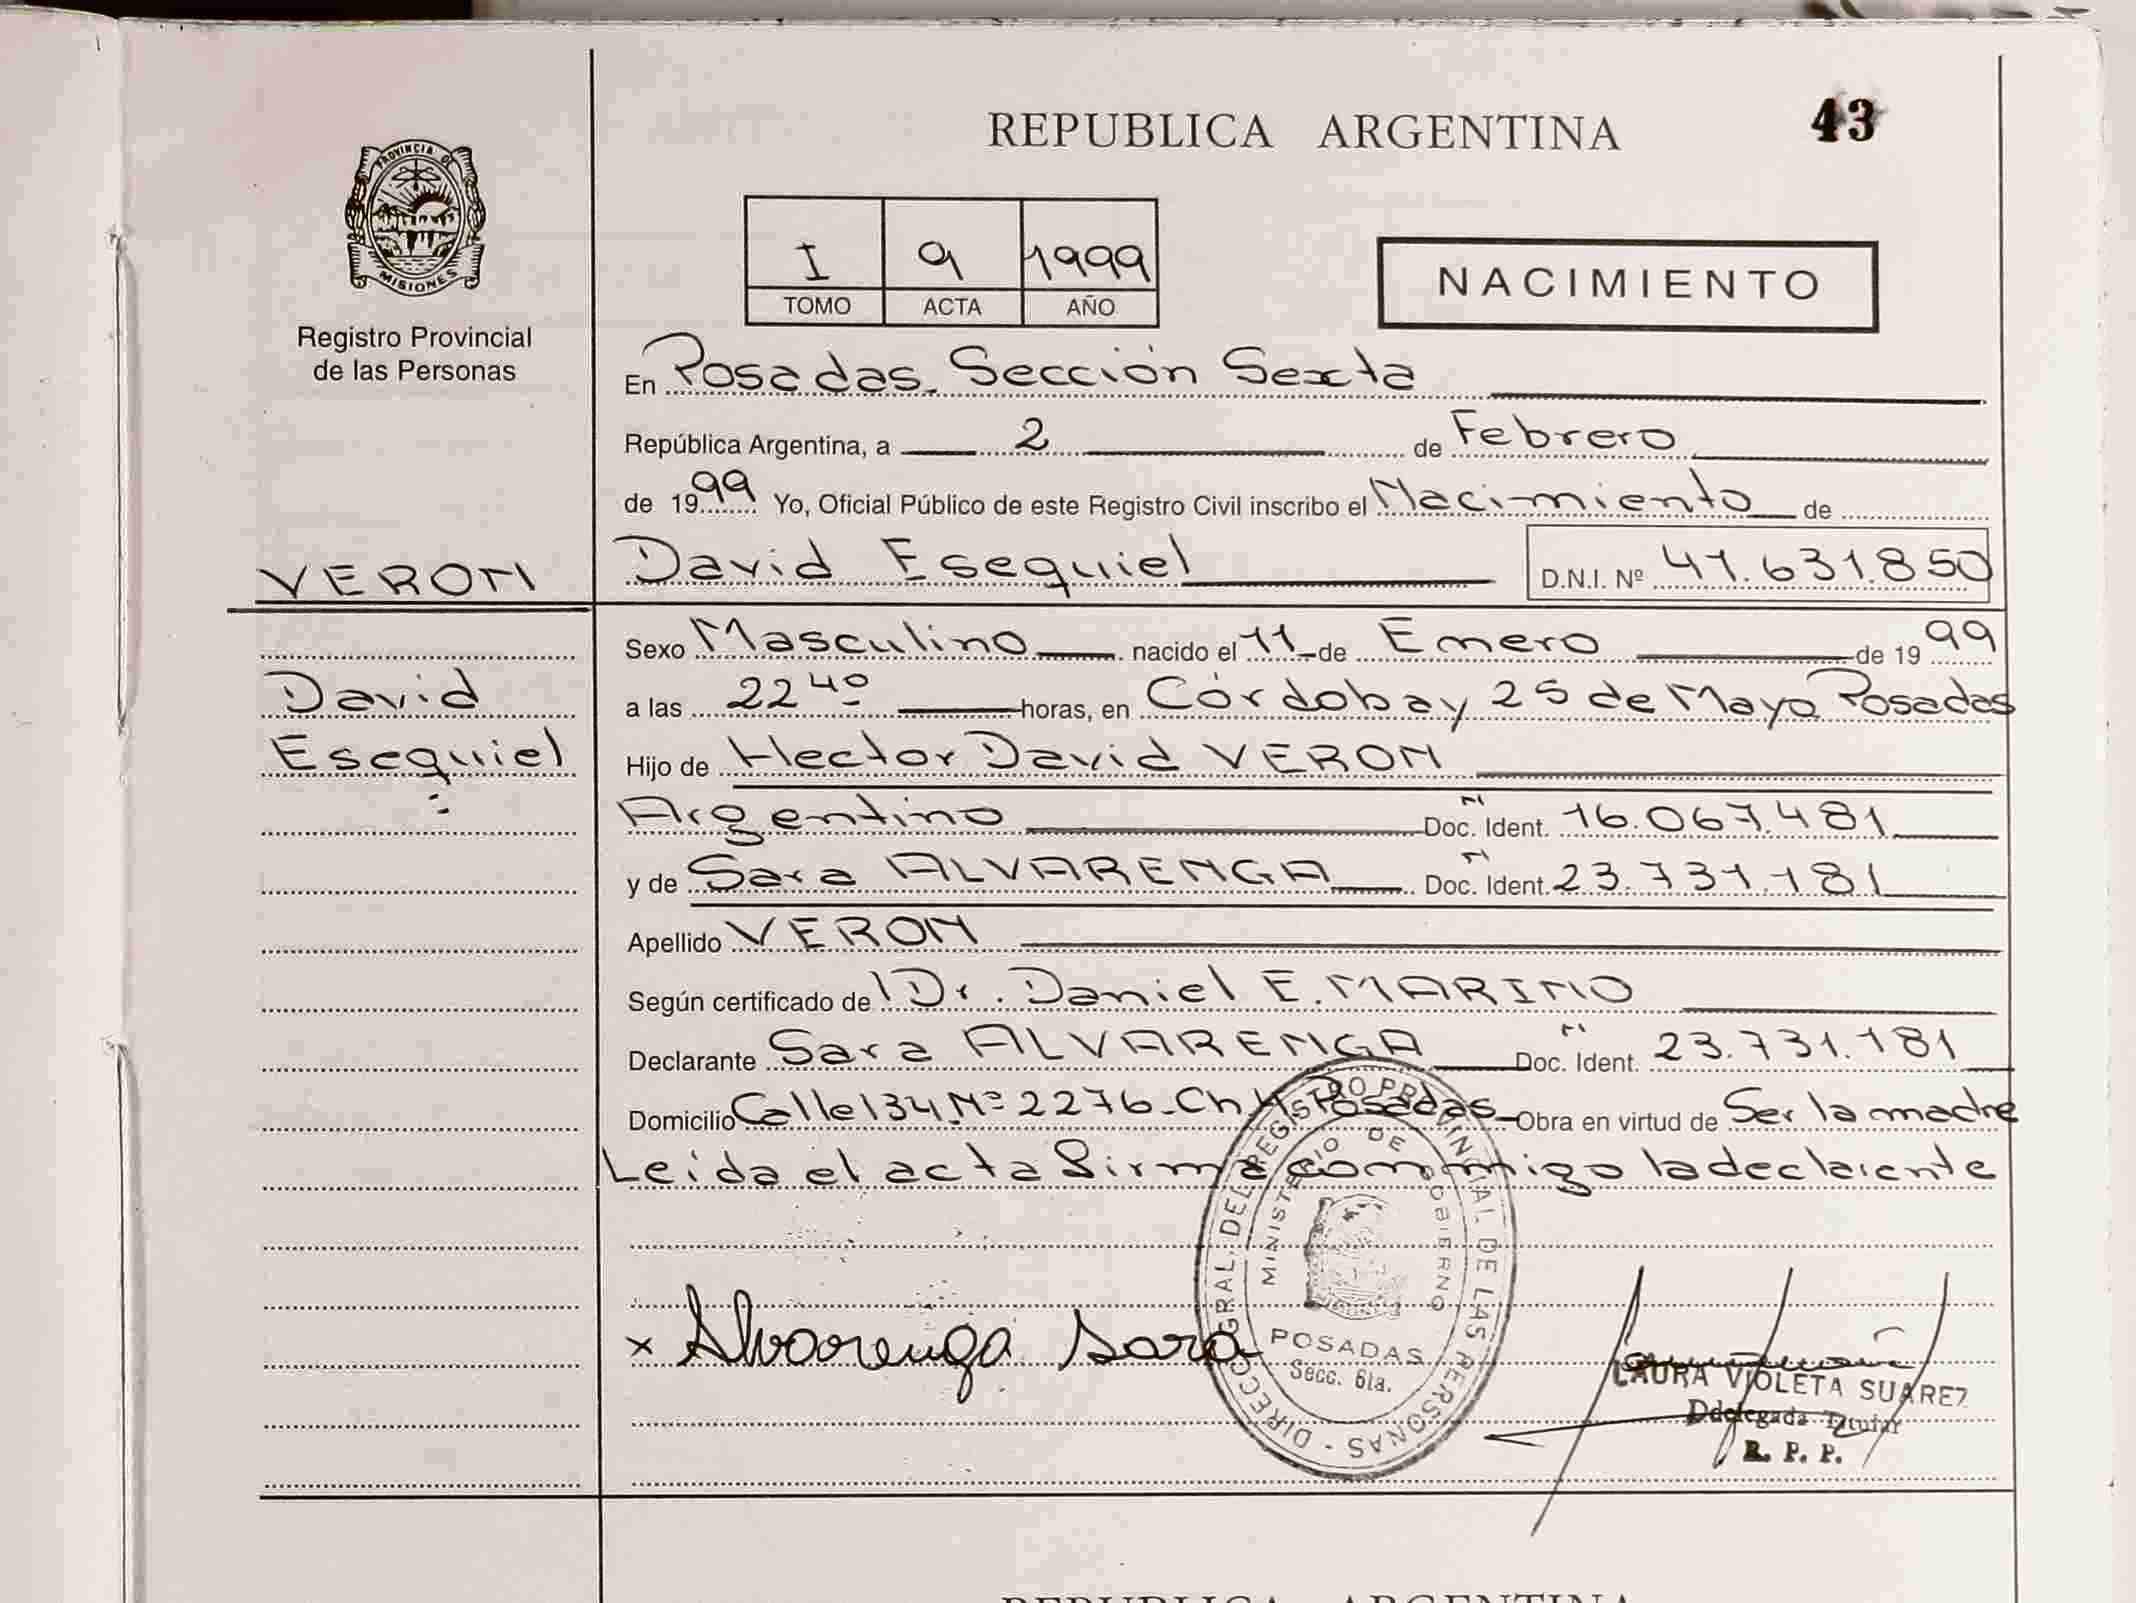 REPUBLICA ARGENTINA
43
PROVINCIA DE
MISIONES
Registro Provincial
de las Personas
I 9 1999
TOMO ACTA AÑO
NACIMIENTO
En Posadas. Sección Sexta
República Argentina, a 2 de Febrero
de 1999 Yo, Oficial Público de este Registro Civil inscribo el Nacimiento de
VERON
David Esequiel D.N.I. Nº 41.631.850
Sexo Masculino nacido el 11 de Enero de 1999
David
a las 22 40 horas, en Córdoba y 25 de Mayo Posadas
Esequiel
Hijo de Hector David VERON
Argentino Doc. Ident. 16.067.481
y de Sara ALVARENGA Doc. Ident. 23.731.181
Apellido VERON
Según certificado de Dr. Daniel E. MARINO
Declarante Sara ALVARENGA Doc. Ident. 23.731.181
Domicilio Calle 134 Nº 2276 - Ch. Posadas Obra en virtud de Ser la madre
Leida el acta firma conmigo la declarante
DIRECC. GRAL. DEL REGISTRO PROVINCIAL DE LAS PERSONAS -
MINISTERIO DE GOBIERNO
POSADAS
Secc. 6ta.
x Alvarenga Sara
LAURA VIOLETA SUAREZ
Delegada Titular
R. P. P.
REPUBLICA ARGENTINA